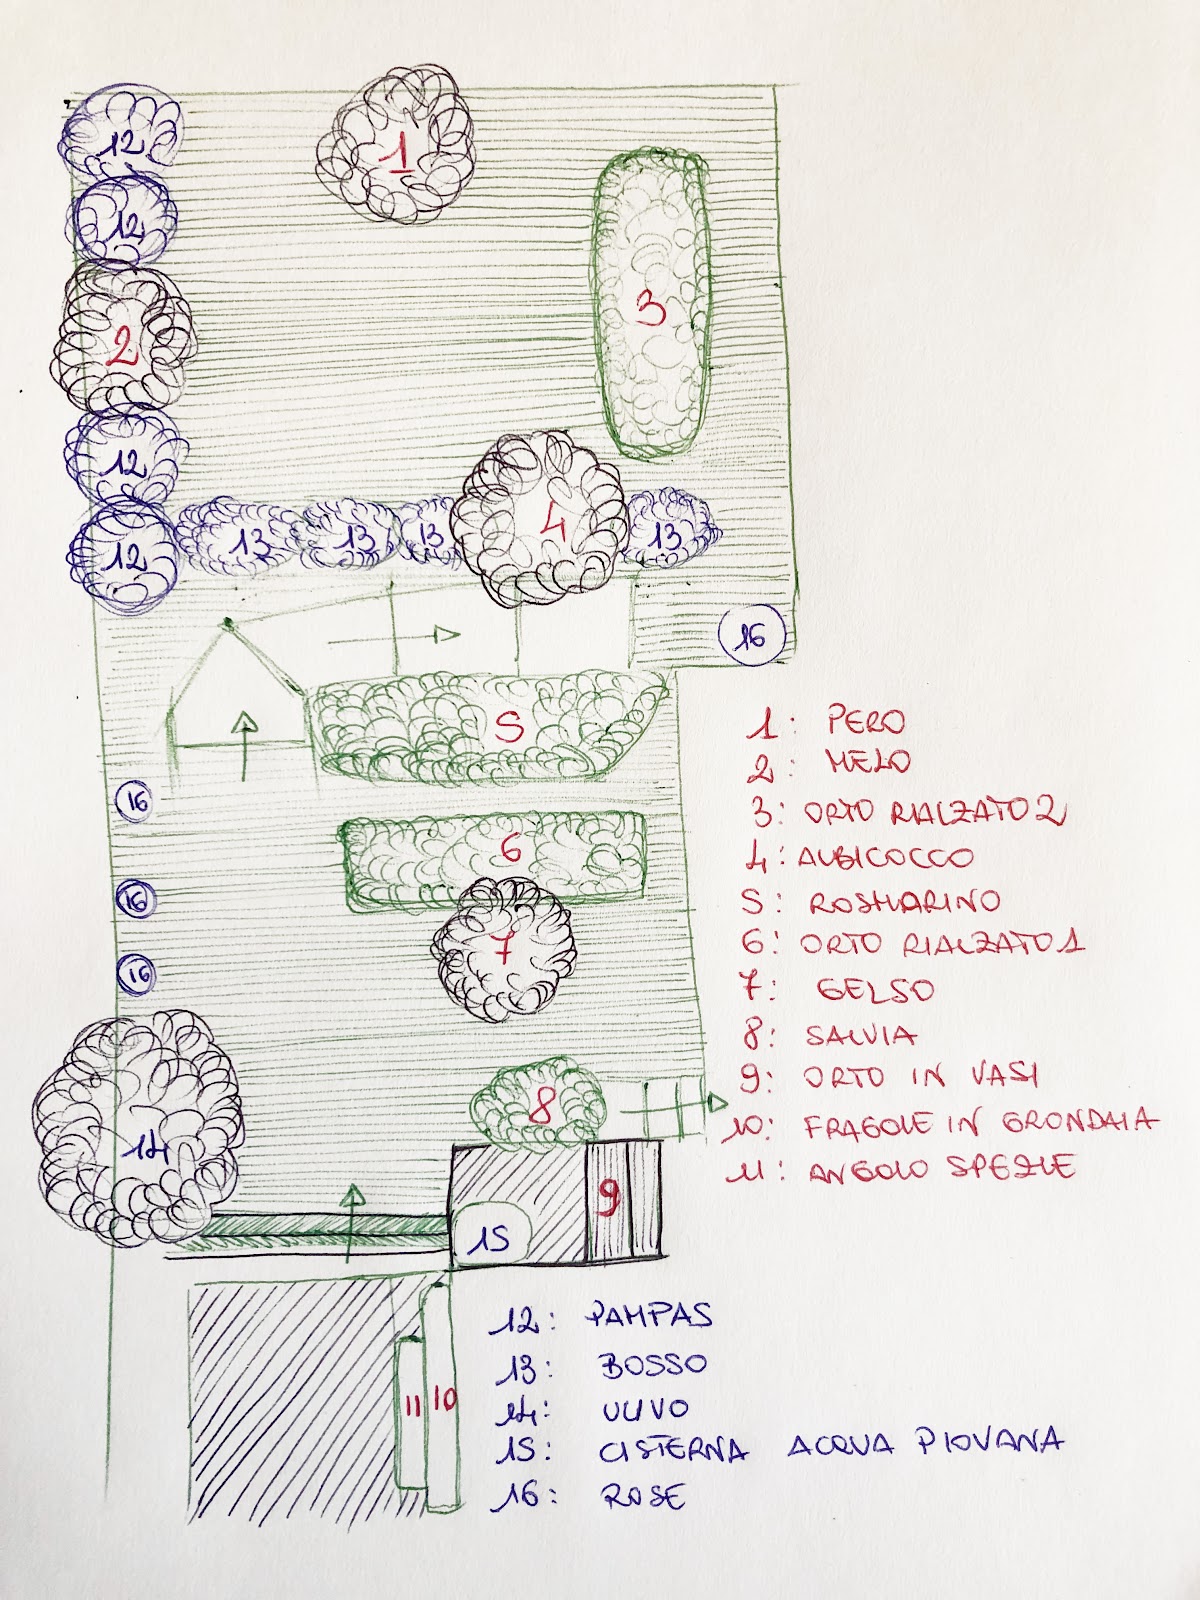 12
1
12
3
2
12
4
13
13
13
13
12
16
5
16
6
16
7
16
8
14
9
15
11
10
1: PERO
2: MELO
3: ORTO RIALZATO 2
4: ALBICOCCO
5: ROSMARINO
6: ORTO RIALZATO 1
7: GELSO
8: SALVIA
9: ORTO IN VASI
10: FRAGOLE IN GRONDAIA
11: ANGOLO SPEZIE
12: PAMPAS
13: BOSSO
14: ULIVO
15: CISTERNA ACQUA PIOVANA
16: ROSE